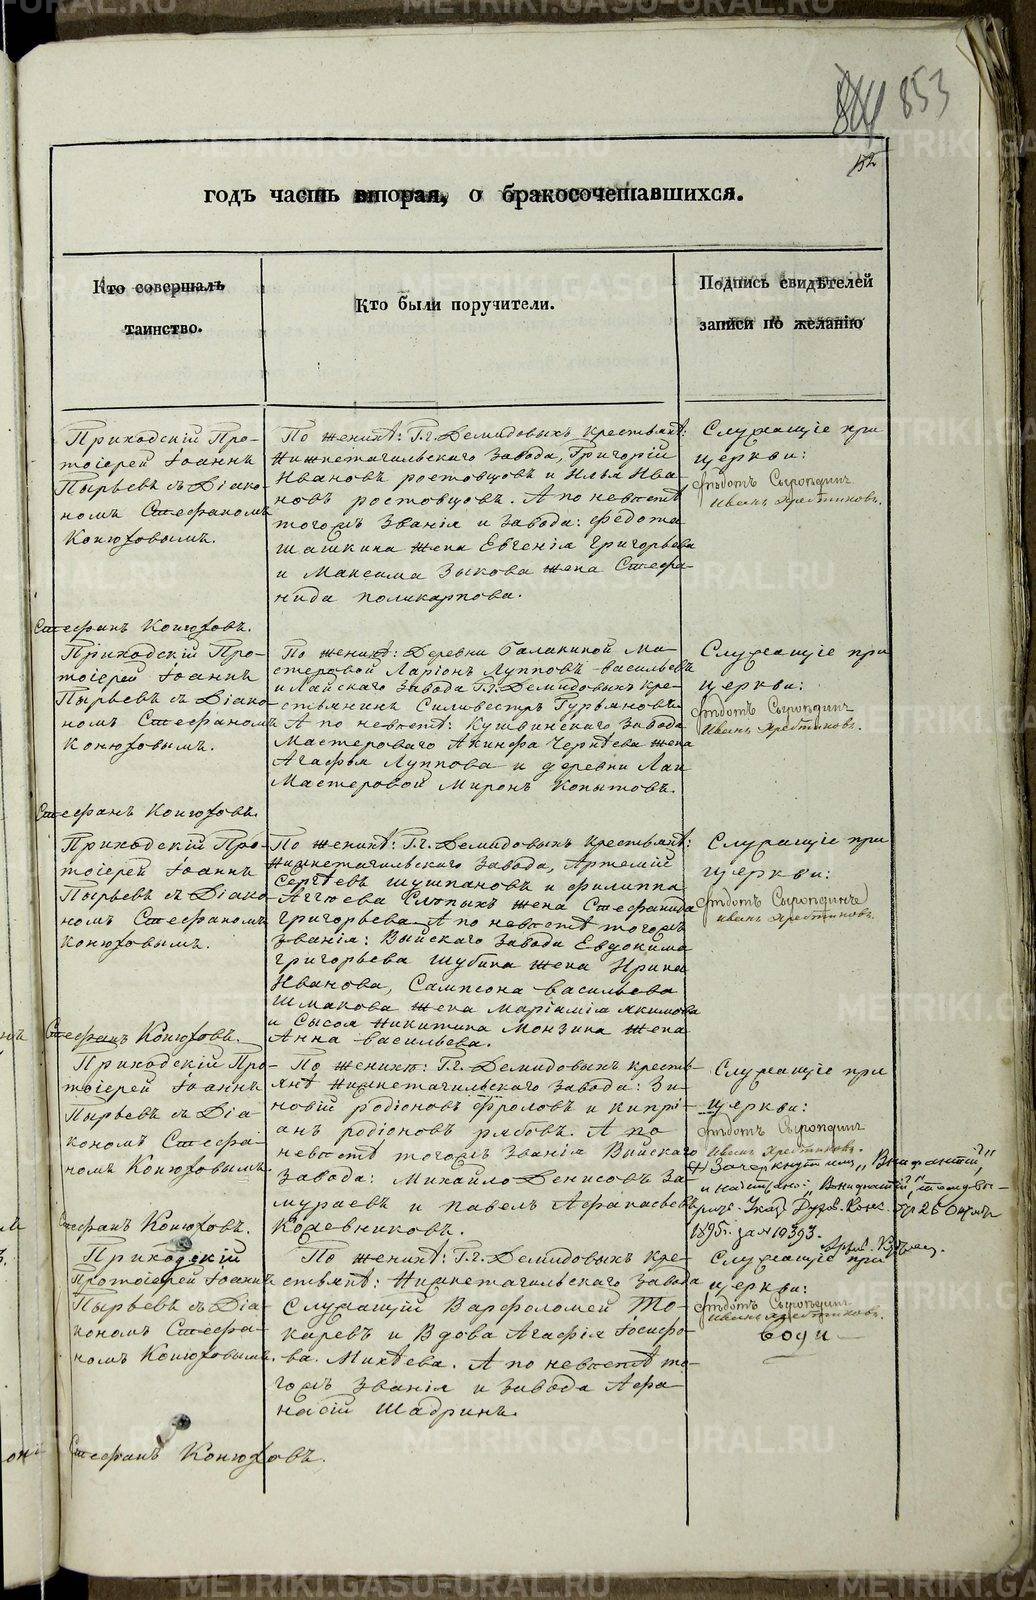 853
152
годъ часть вторая, о бракосочетавшихся.
Кто совершалъ
таинство.
Кто были поручители.
Подпись свидѣтелей
записи по желанію
Приходскій Про-
тоіерей Іоаннъ
Пырьевъ съ Діако-
номъ Стефаномъ
Конюховымъ.
Стефанъ Конюховъ.
По женихѣ: Г.г. Демидовыхъ крестьянѣ:
Нижнетагильскаго завода, Григорій
Ивановъ ростовцовъ и Илья Ива-
новъ ростовцовъ. А по невѣстѣ
тогожъ званія и завода: Федота
шашкина жена Евгенія Григорьева
и Максима Зыкова жена Стефа-
нида поликарпова.
Служащіе при
церкви:
Ѳедотъ Сыропдинъ
Иванъ Хребтиковъ.
Приходскій Про-
тоіерей Іоаннъ
Пырьевъ съ Діако-
номъ Стефаномъ
Конюховымъ.
Стефанъ Конюховъ.
По женихѣ: Деревни Балакиной Ма-
стеровой Ларіонъ Лупповъ Васильевъ
и Лайскаго завода Г.г. Демидовыхъ кре-
стьянинъ Сильвестръ Гурьяновъ.
А по невѣстѣ: Кушвинскаго завода
Мастероваго Акинфа Чернѣева жена
Агафья Луппова и деревни Лаи
Мастеровой Миронъ Копытовъ.
Служащіе при
церкви:
Ѳедотъ Сыропдинъ
Иванъ Хребтиковъ.
Приходскій Про-
тоіерей Іоаннъ
Пырьевъ съ Діако-
номъ Стефаномъ
Конюховымъ.
Стефанъ Конюховъ.
По женихѣ: Г.г. Демидовыхъ крестьянѣ:
Нижнетагильскаго завода, Артемій
Сергѣевъ шушпановъ и филиппа
Аггѣева Слѣпыхъ жена Стефанида
Григорьева. А по невѣстѣ тогожъ
званія: Выйскаго завода Евдокима
григорьева шубина жена Ирина
Иванова, Сампсона Васильева
Шмакова жена Маріамія якимова
и Сысоя Никитина Монзина жена
Анна Васильева.
Служащіе при
церкви:
Ѳедотъ Сыропдинъ
Иванъ Хребтиковъ.
Приходскій Про-
тоіерей Іоаннъ
Пырьевъ съ Діа-
кономъ Стефа-
номъ Конюховымъ.
Стефанъ Конюховъ.
По женихѣ: Г.г. Демидовыхъ кресть-
янѣ Нижнетагильскаго завода: Зи-
новій родіоновъ Фроловъ и кипрі-
анъ родіоновъ рябовъ. А по
невѣстѣ тогожъ званія Выйскаго
завода: Михайло Денисовъ За-
мураевъ и павелъ Афанасьевъ
Кожевниковъ.
Служащіе при
церкви:
Ѳедотъ Сыропдинъ
Иванъ Хребтиковъ.
Зачеркнут
1895 за № 19393.
Приходскій
Протоіерей Іоаннъ
Пырьевъ съ Діа-
кономъ Стефа-
номъ Конюховымъ.
Стефанъ Конюховъ.
По женихѣ: Г.г. Демидовыхъ кре-
стьянѣ: Нижнетагильскаго завода
Служащій Варфоломей То-
каревъ и Вдова Агафія Іосифо-
ва Михѣева. А по невѣстѣ то-
гожъ званія и завода Афа-
насій Шадринъ.
Служащіе при
церкви:
Ѳедотъ Сыропдинъ
Иванъ Хребтиковъ.
METRIKI.GASO-URAL.RU